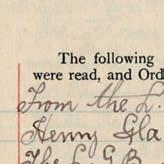 The following
were read, and Ord
From the L.
Henry Gla
The L. G. B.